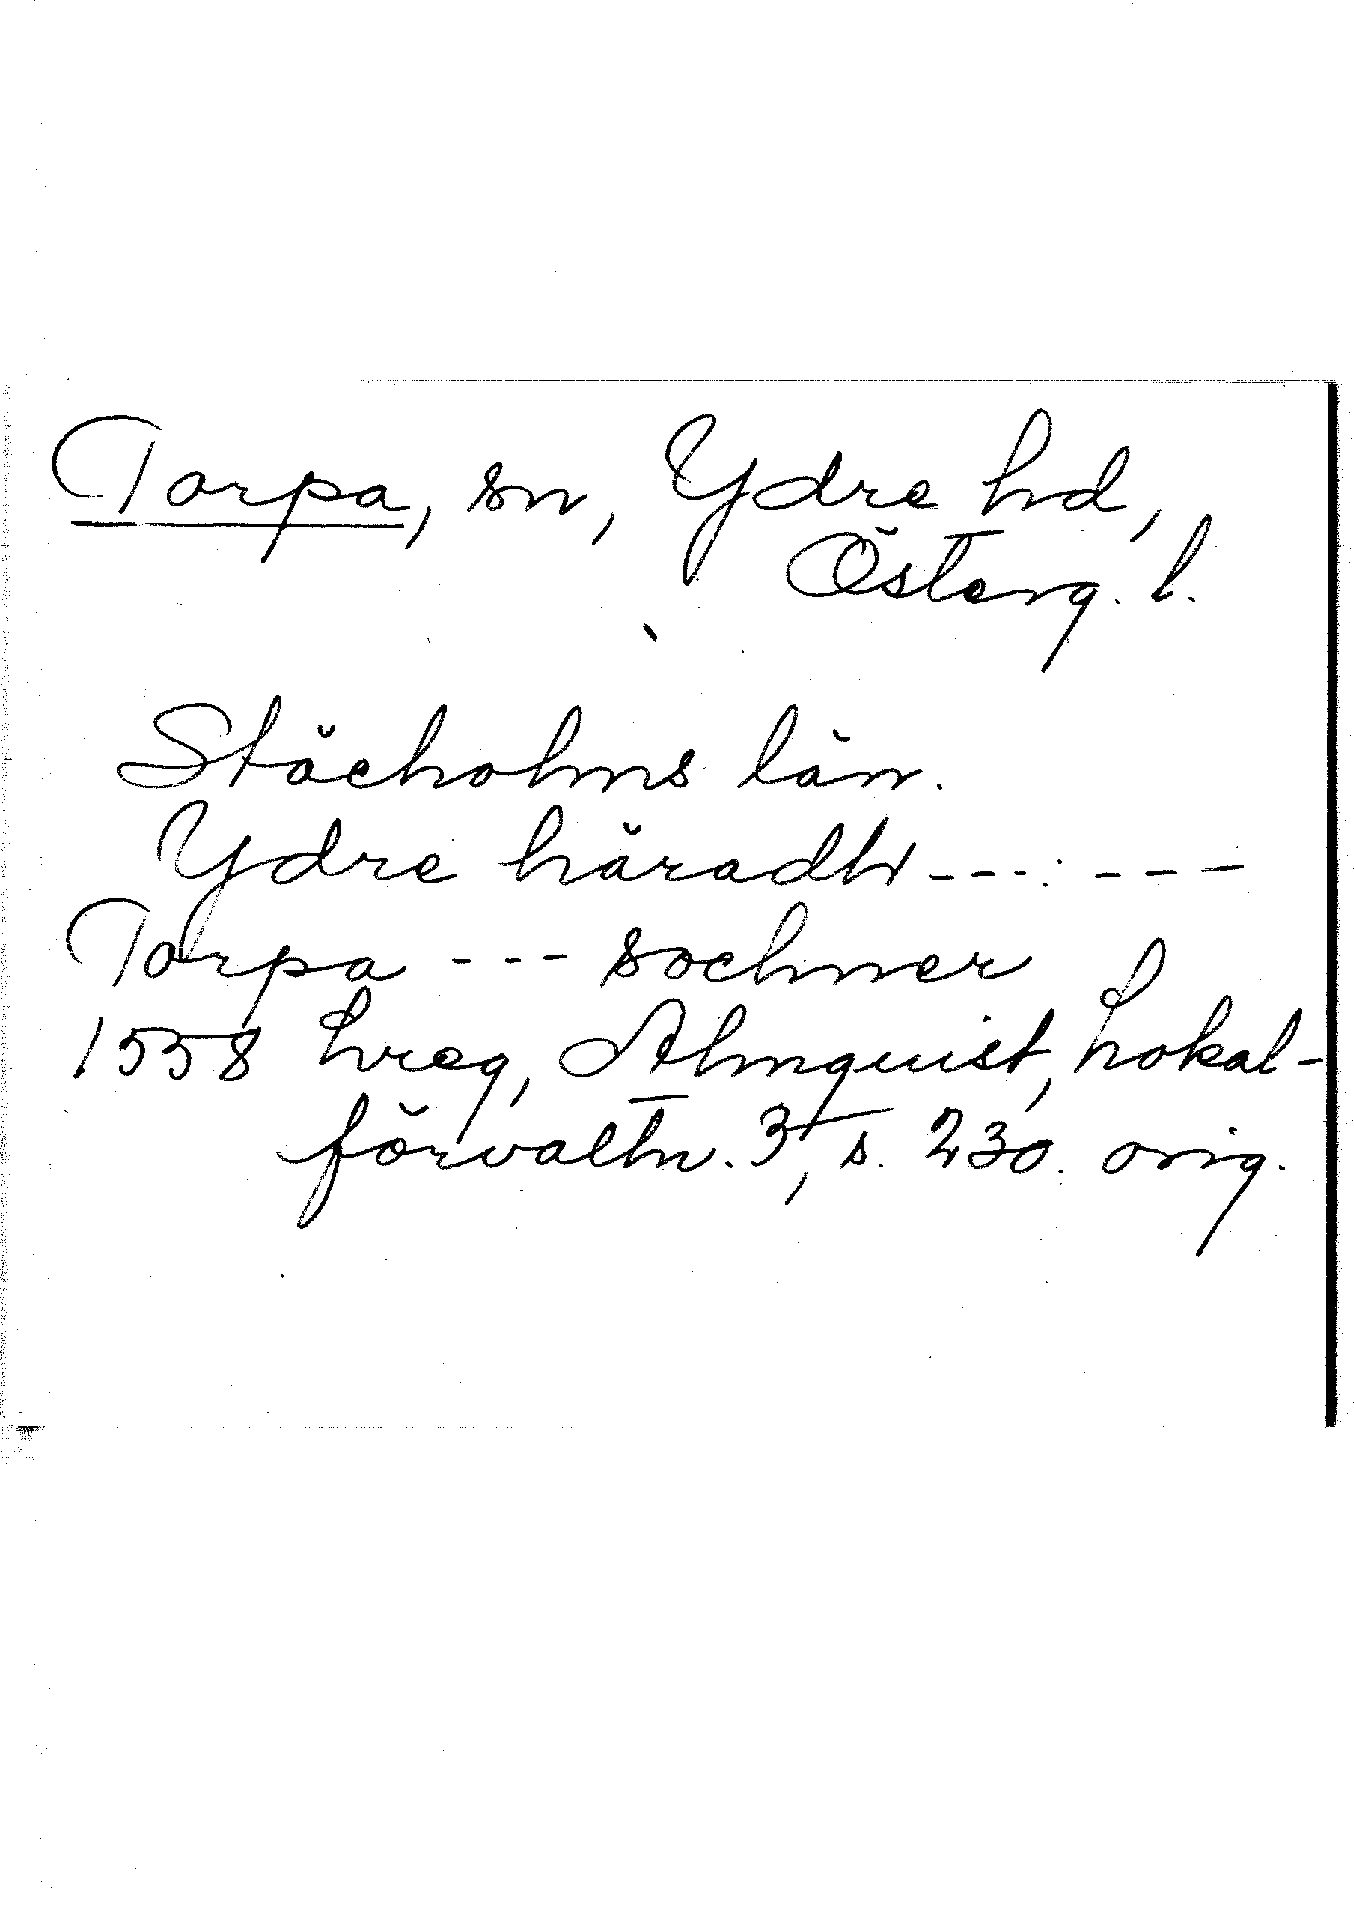 Torpa, sn, Ydre hd,
Österg. l.
Stächolms län.
Ydre häradh --- ---
Torpa --- sochner
1558 hreg, Almquist, Lokal-
förvaltn. 3, s. 230. orig.